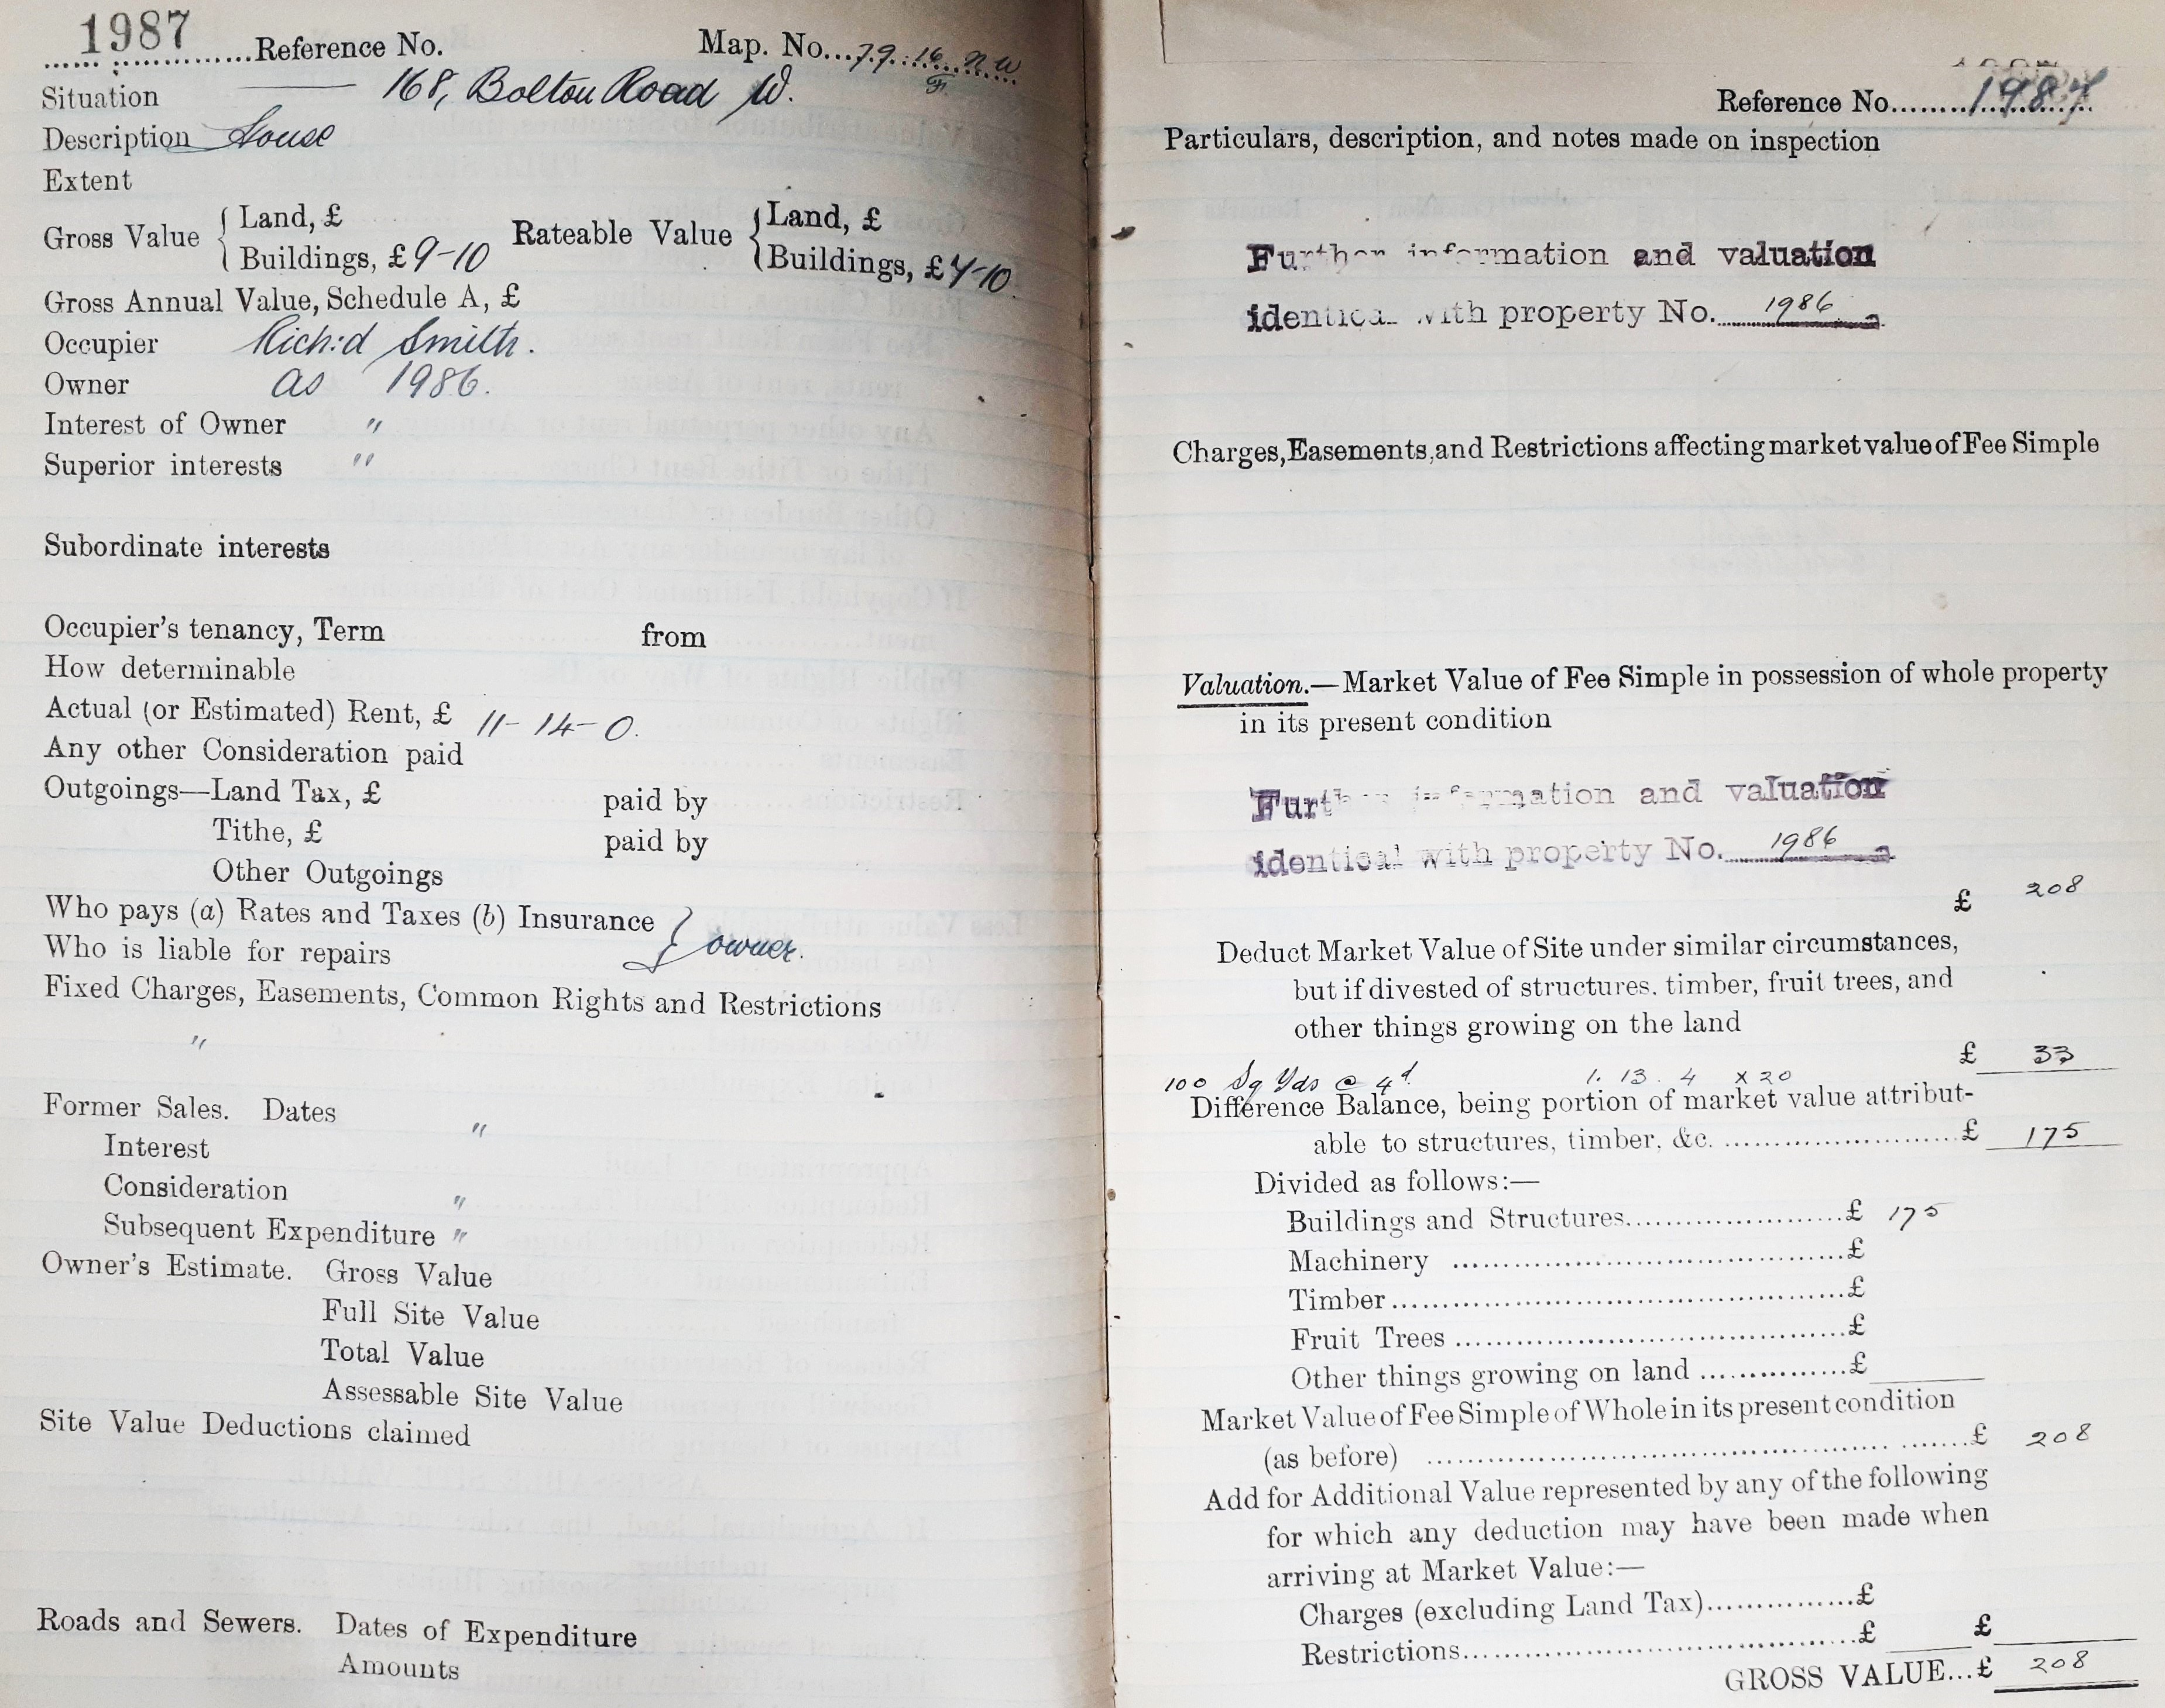 1987 Reference No. Map. No. 79.16 NW
F
Situation 168, Bolton Road W.
Description House
Extent
Gross Value { Land, £ Rateable Value { Land, £
Buildings, £ 9-10 Buildings, £ 7-10
Gross Annual Value, Schedule A, £
Occupier Rich:d Smith.
Owner as 1986.
Interest of Owner "
Superior interests "
Subordinate interests
Occupier's tenancy, Term from
How determinable
Actual (or Estimated) Rent, £ 11-14-0.
Any other Consideration paid
Outgoings—Land Tax, £ paid by
Tithe, £ paid by
Other Outgoings
Who pays (a) Rates and Taxes (b) Insurance } owner.
Who is liable for repairs
Fixed Charges, Easements, Common Rights and Restrictions
"
Former Sales. Dates "
Interest
Consideration "
Subsequent Expenditure "
Owner's Estimate. Gross Value
Full Site Value
Total Value
Assessable Site Value
Site Value Deductions claimed
Roads and Sewers. Dates of Expenditure
Amounts
Reference No. 1987
Particulars, description, and notes made on inspection
Further information and valuation
identical with property No. 1986
Charges, Easements, and Restrictions affecting market value of Fee Simple
Valuation.—Market Value of Fee Simple in possession of whole property
in its present condition
Further information and valuation
identical with property No. 1986
£ 208
Deduct Market Value of Site under similar circumstances,
but if divested of structures. timber, fruit trees, and
other things growing on the land
£ 33
100 Sq Yds @ 4d 1. 13. 4 x 20
Difference Balance, being portion of market value attribut-
able to structures, timber, &c. £ 175
Divided as follows:—
Buildings and Structures £ 175
Machinery £
Timber £
Fruit Trees £
Other things growing on land £
Market Value of Fee Simple of Whole in its present condition
(as before) £ 208
Add for Additional Value represented by any of the following
for which any deduction may have been made when
arriving at Market Value:—
Charges (excluding Land Tax) £
Restrictions £ £
GROSS VALUE...£ 208